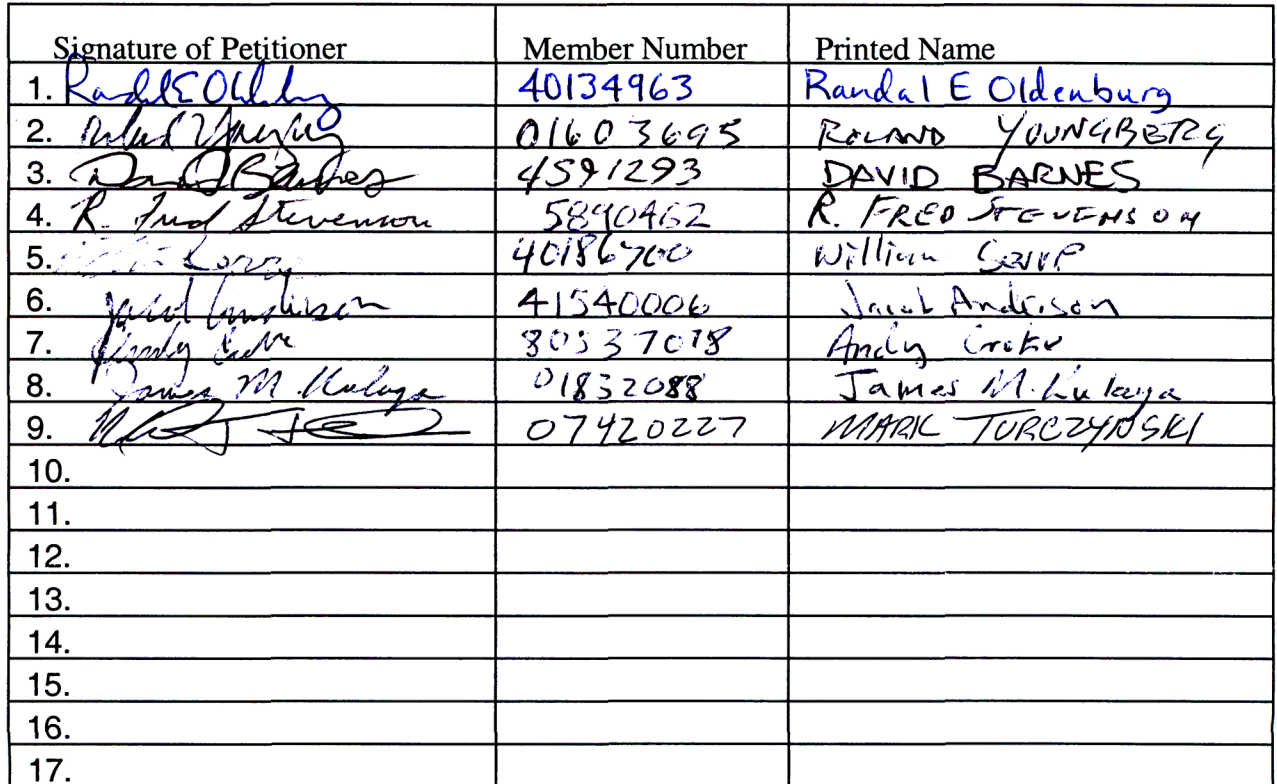 Signature of Petitioner Member Number Printed Name
1. Randal E Oldenburg 40134963 Randal E Oldenburg
2. 01603695 ROLAND YOUNGBERG
3. David Barnes 4591293 DAVID BARNES
4. R. Fred Stevenson 5890462 R. FRED STEVENSON
5. 40186700 William
6. Jacob Anderson 41540006 Jacob Anderson
7. Andy 80537078 Andy
8. James M. Kulaga 01832088 James M. Kulaga
9. 07420227 MARK TURCZYNSKI
10.
11.
12.
13.
14.
15.
16.
17.